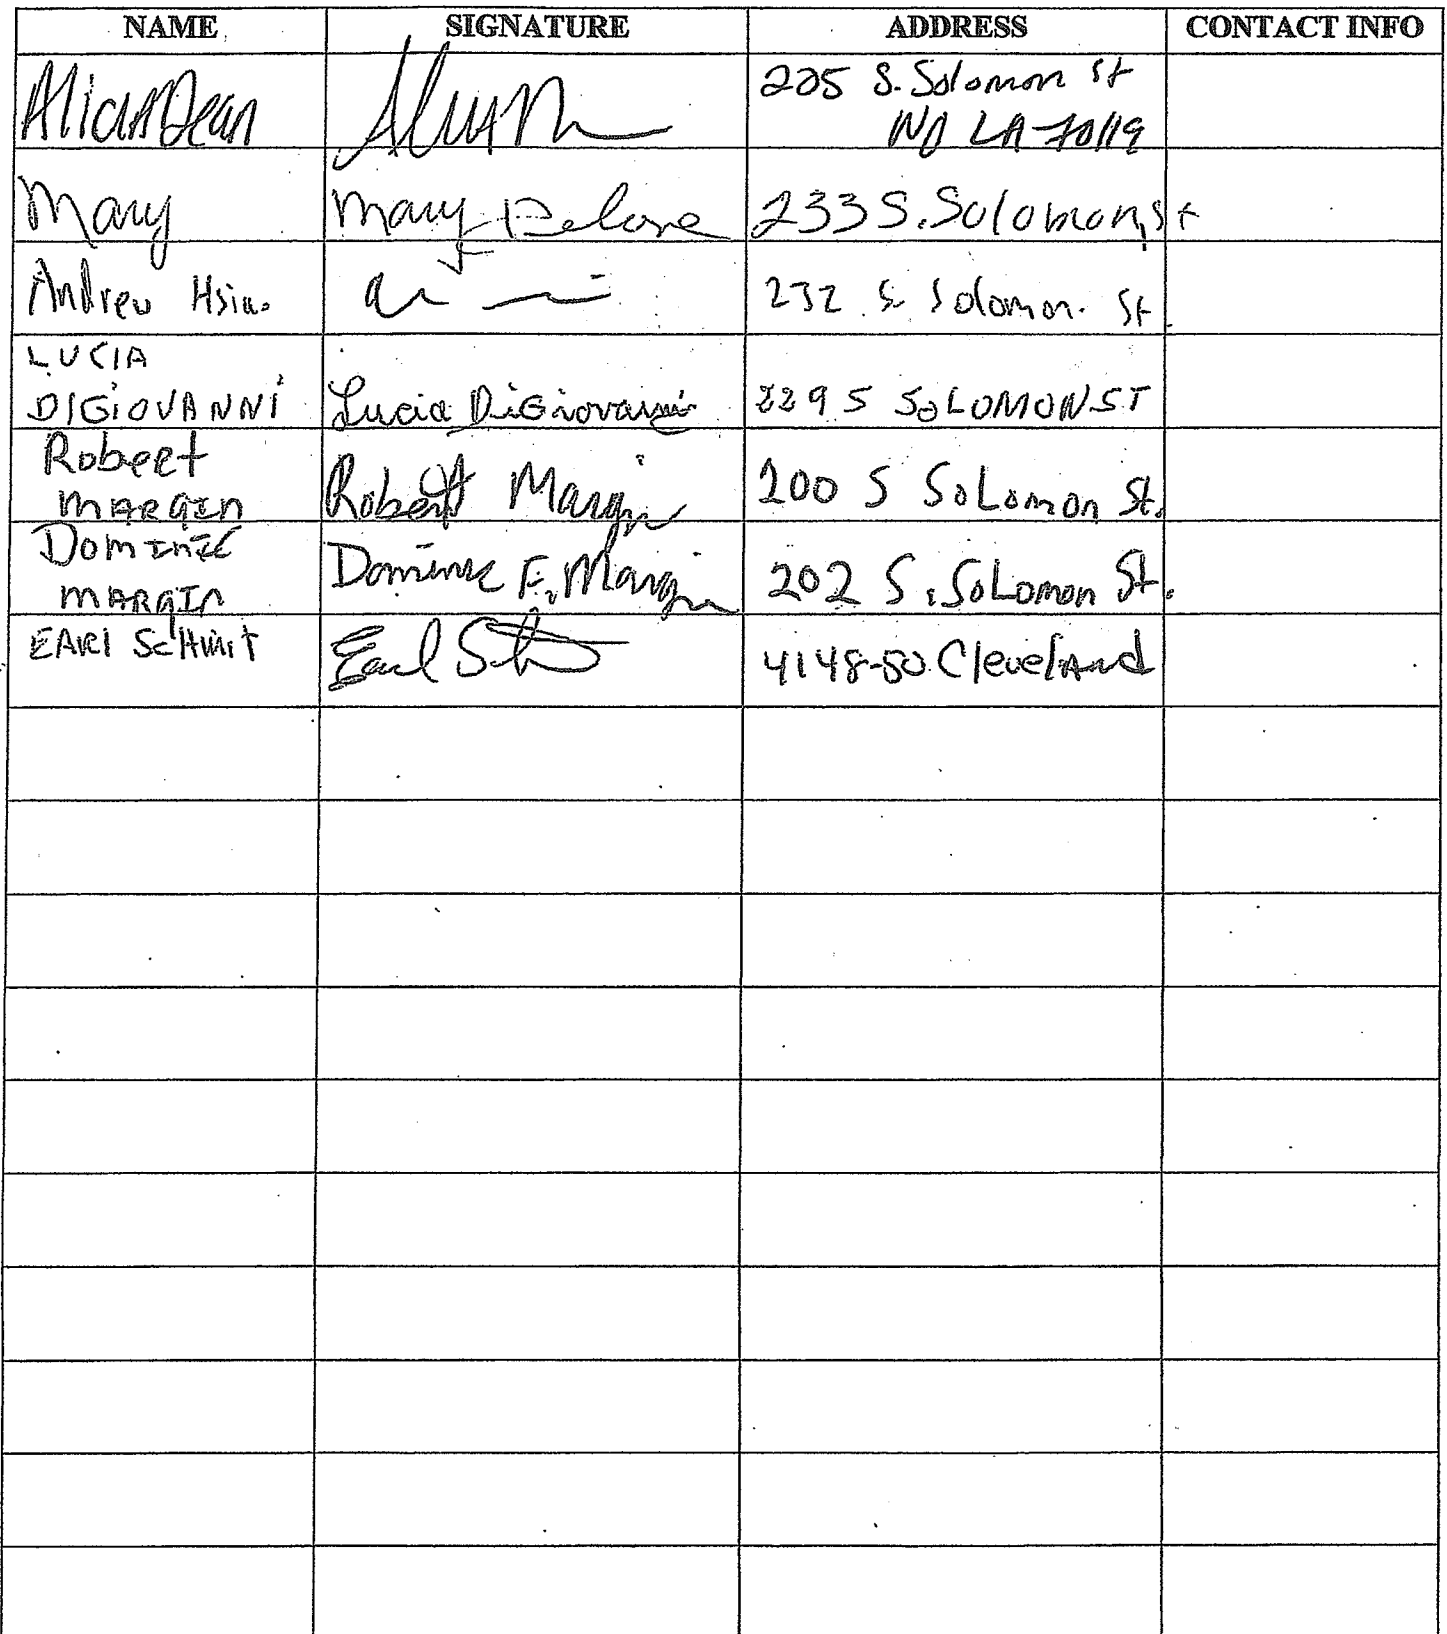 NAME SIGNATURE ADDRESS CONTACT INFO
Alicia Dean 225 S. Solomon St
NO LA 70119
Mary Mary 233 S. Solomon St
Andrew 232 S Solomon St
LUCIA
DIGIOVANNI Lucia DiGiovanni 229 S SOLOMON ST
Robert
MARGIN Robert Margin 200 S SoLomon St.
Dominic
MARGIN Dominic F. Margin 202 S. SoLomon St.
EARl ScHmit Earl 4148-50 Cleveland